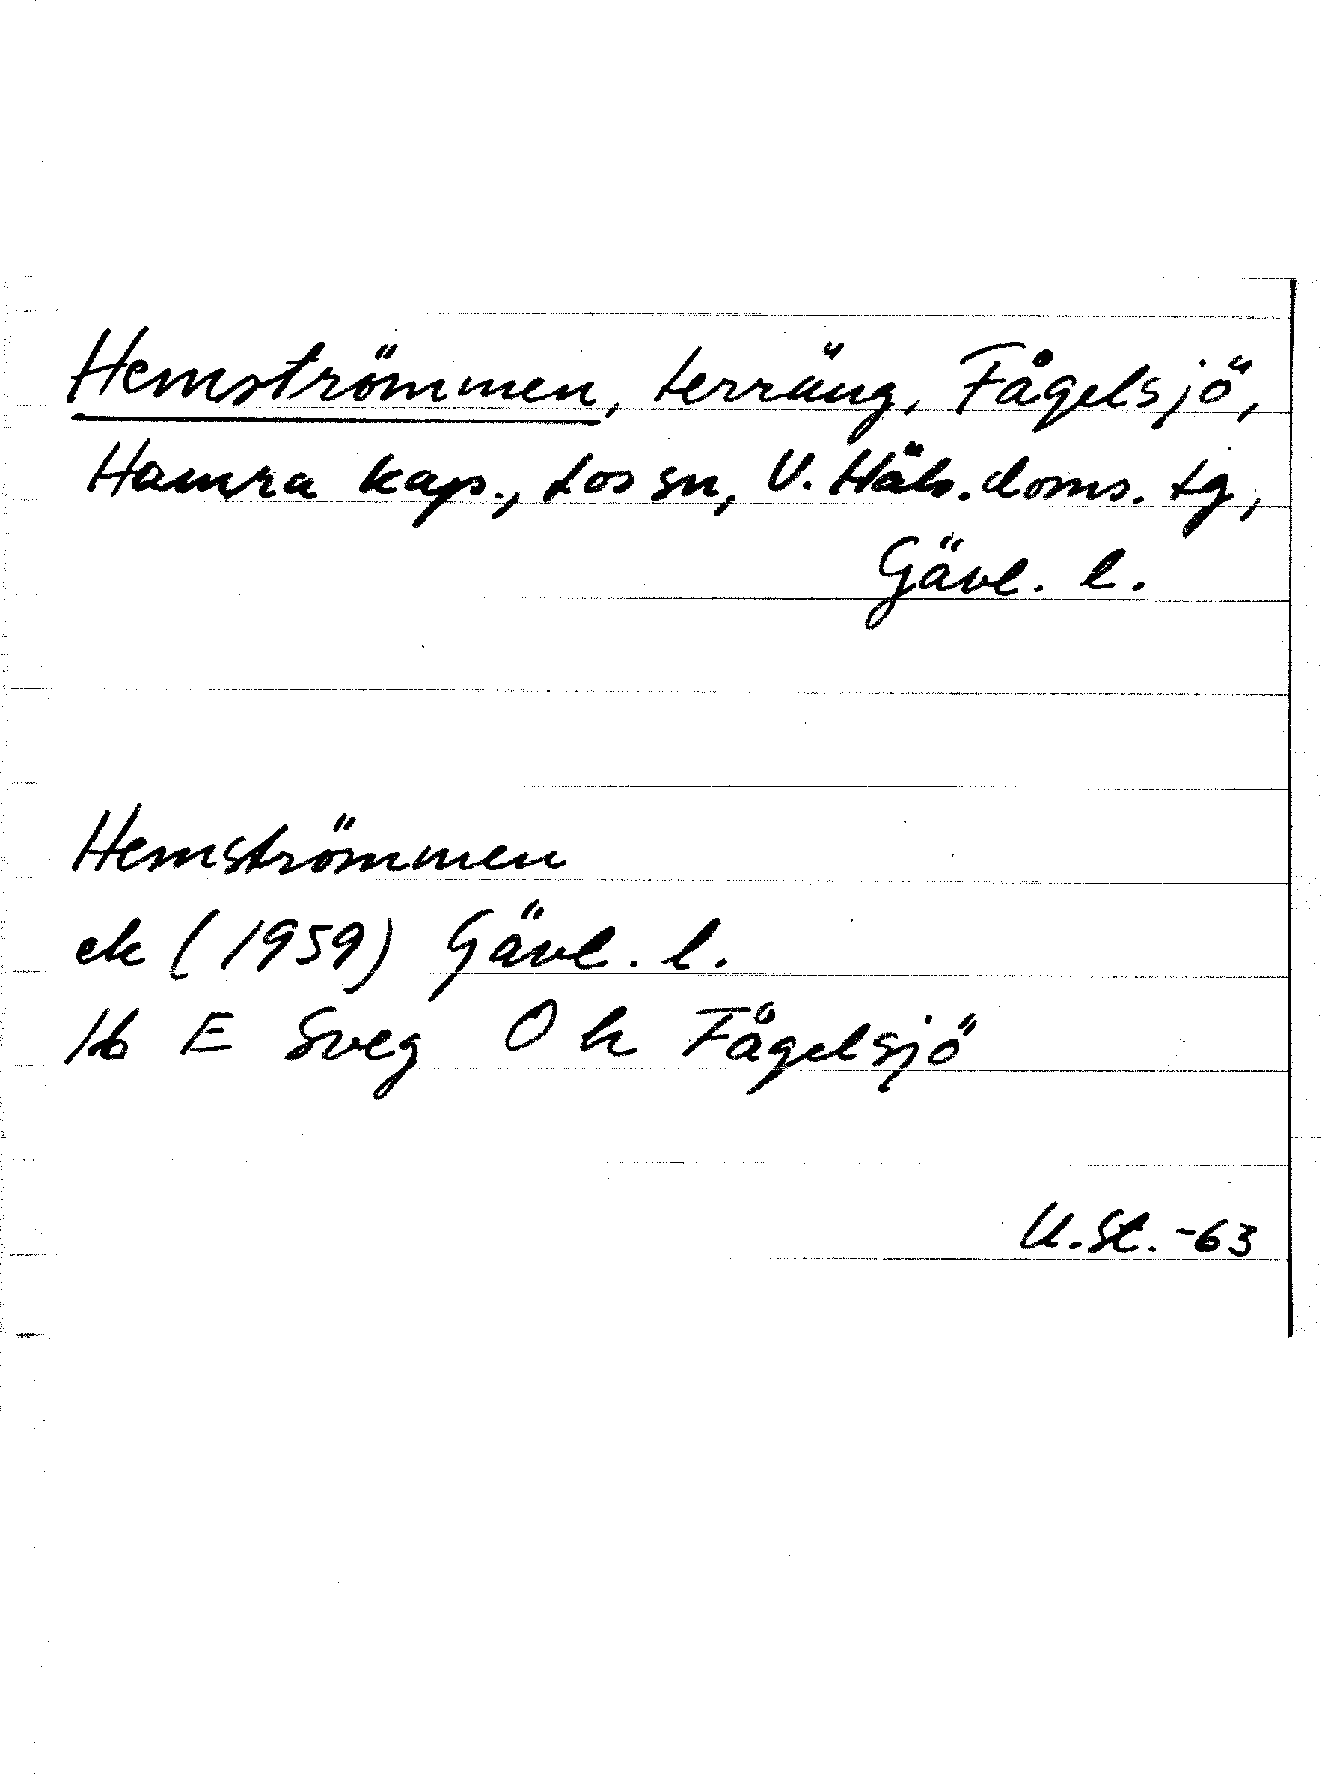 Hemströmmen, terräng, Fågelsjö,
Hamra kap., Los sn, V. Häls. doms. tg,
Gävl. l.
Hemströmmen
ek (1959) Gävl. l.
16 E Sveg O h Fågelsjö
U.St. -63